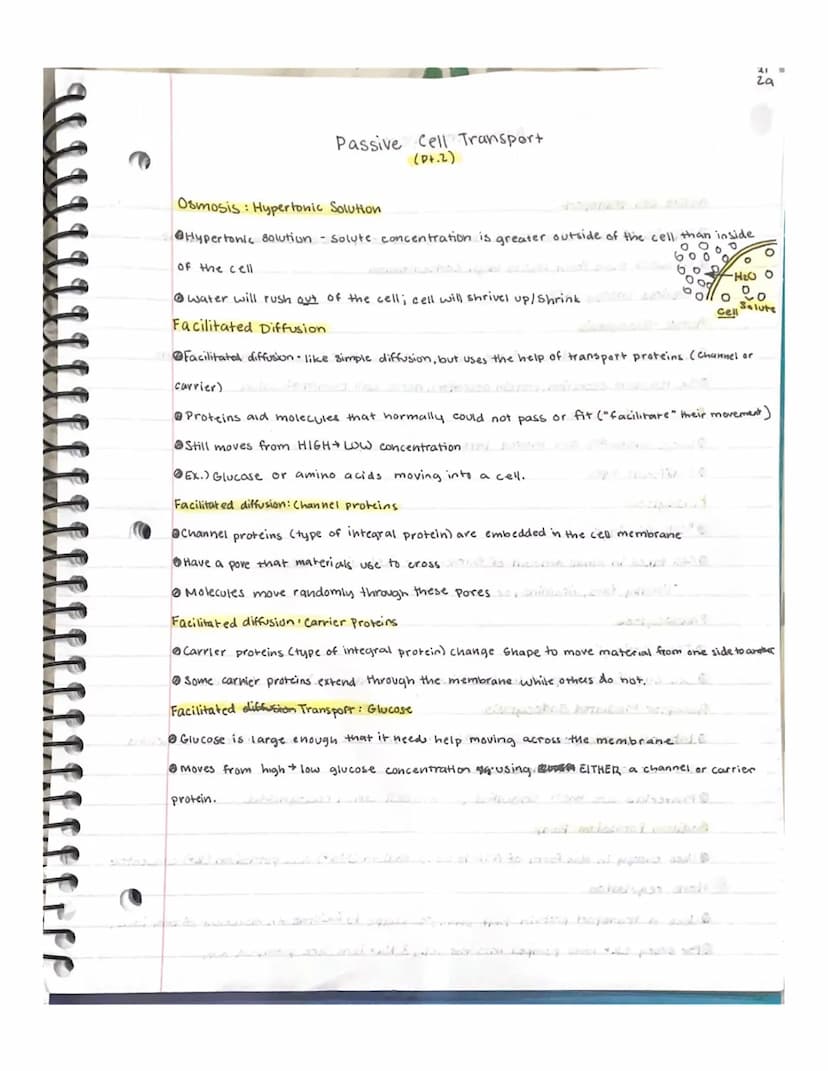 2a
Passive Cell Transport
(Pt.2)
Osmosis : Hypertonic Solution
Hypertonic solution - solute concentration is greater outside of the cell than inside
of the cell
Water will rush out of the cell; cell will shrivel up/shrink
H2O
Cell
Solute
Facilitated Diffusion
Facilitated diffusion - like simple diffusion, but uses the help of transport proteins (channel or
carrier)
Proteins aid molecules that normally could not pass or fit ("facilitate" their movement)
Still moves from HIGH → LOW concentration
Ex.) Glucose or amino acids moving into a cell.
Facilitated diffusion: Channel proteins
Channel proteins (type of integral protein) are embedded in the cell membrane
Have a pore that materials use to cross
Molecules move randomly through these pores
Facilitated diffusion: Carrier Proteins
Carrier proteins (type of integral protein) change shape to move material from one side to another
Some carrier proteins extend through the membrane while others do not.
Facilitated diffusion Transport: Glucose
Glucose is large enough that it needs help moving across the membrane
Moves from high → low glucose concentration using EITHER a channel or carrier
protein.